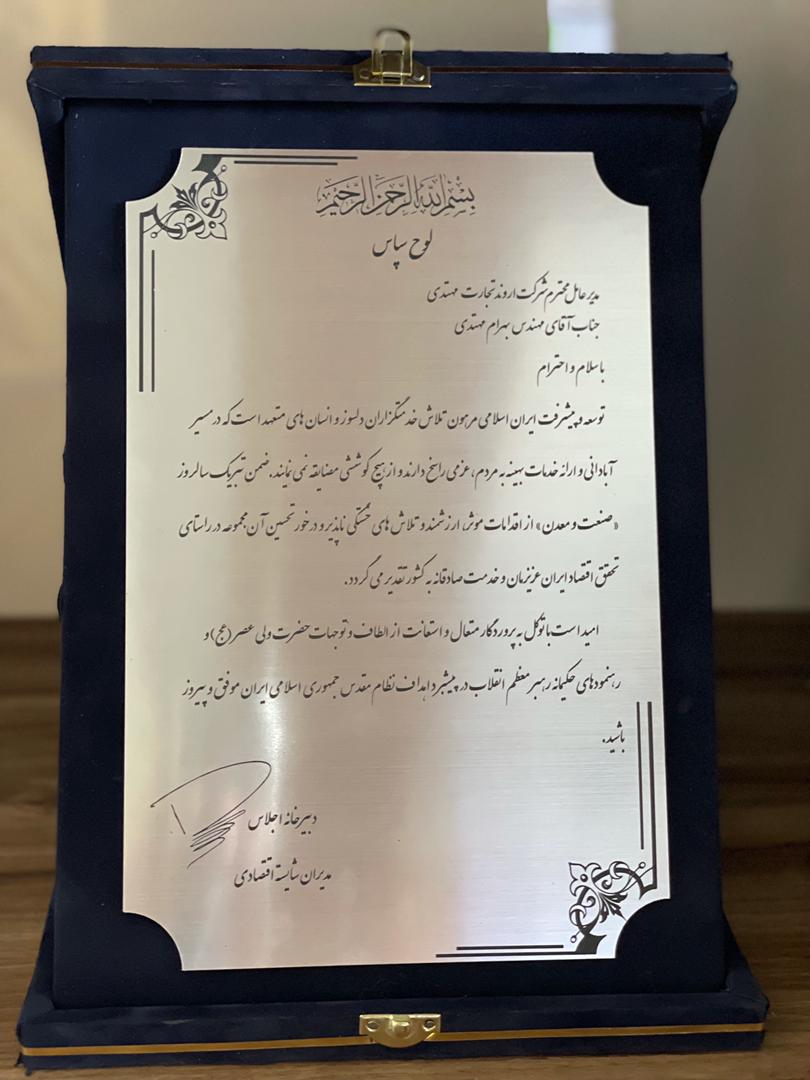 بسم الله الرحمن الرحیم
لوح سپاس
مدیر عامل محترم شرکت اروند تجارت مهتدی
جناب آقای مهندس بهرام مهتدی
با سلام و احترام
توسعه و پیشرفت ایران اسلامی مرهون تلاش خدمتگزاران دلسوز و انسان های متعهد است که در مسیر
آبادانی و ارائه خدمات بهینه به مردم، عزمی راسخ دارند و از هیچ کوششی مضایقه نمی نمایند. ضمن تبریک سالروز
«صنعت و معدن» از اقدامات موثر، ارزشمند و تلاش های خستگی ناپذیر و درخور تحسین آن مجموعه در راستای
تحقق اقتصاد ایران عزیزمان و خدمت صادقانه به کشور تقدیر می گردد.
امید است با توکل به پروردگار متعال و استعانت از الطاف و توجهات حضرت ولی عصر (عج) و
رهنمودهای حکیمانه رهبر معظم انقلاب در پیشبرد اهداف نظام مقدس جمهوری اسلامی ایران موفق و پیروز
باشید.
دبیرخانه اجلاس
مدیران شایسته اقتصادی